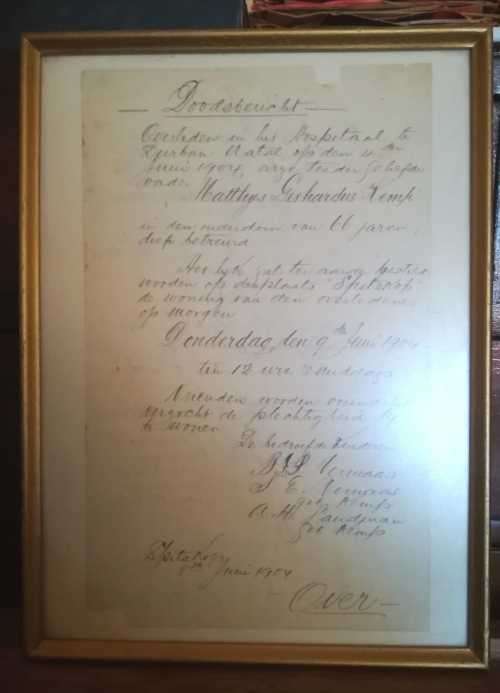 Doodsbericht
Overleden in het Hospitaal te
Durban Natal op den
Juni 1904, onze teeder geliefde
vader
Matthys Gerhardus Kemp
in den ouderdom van 66 jaren,
diep betreurd
Het lyk zal ter aarde
worden op de plaats "Spitskop"
de woning van den overledene
op morgen
Donderdag, den 9de Juni 1904
ten 12 ure
Vrienden worden
verzocht de plechtigheid by
te wonen
De bedroefde Kinderen
Vermaas
geb Kemp
A. H. Landman
geb Kemp
Spitskop
Juni 1904
Over